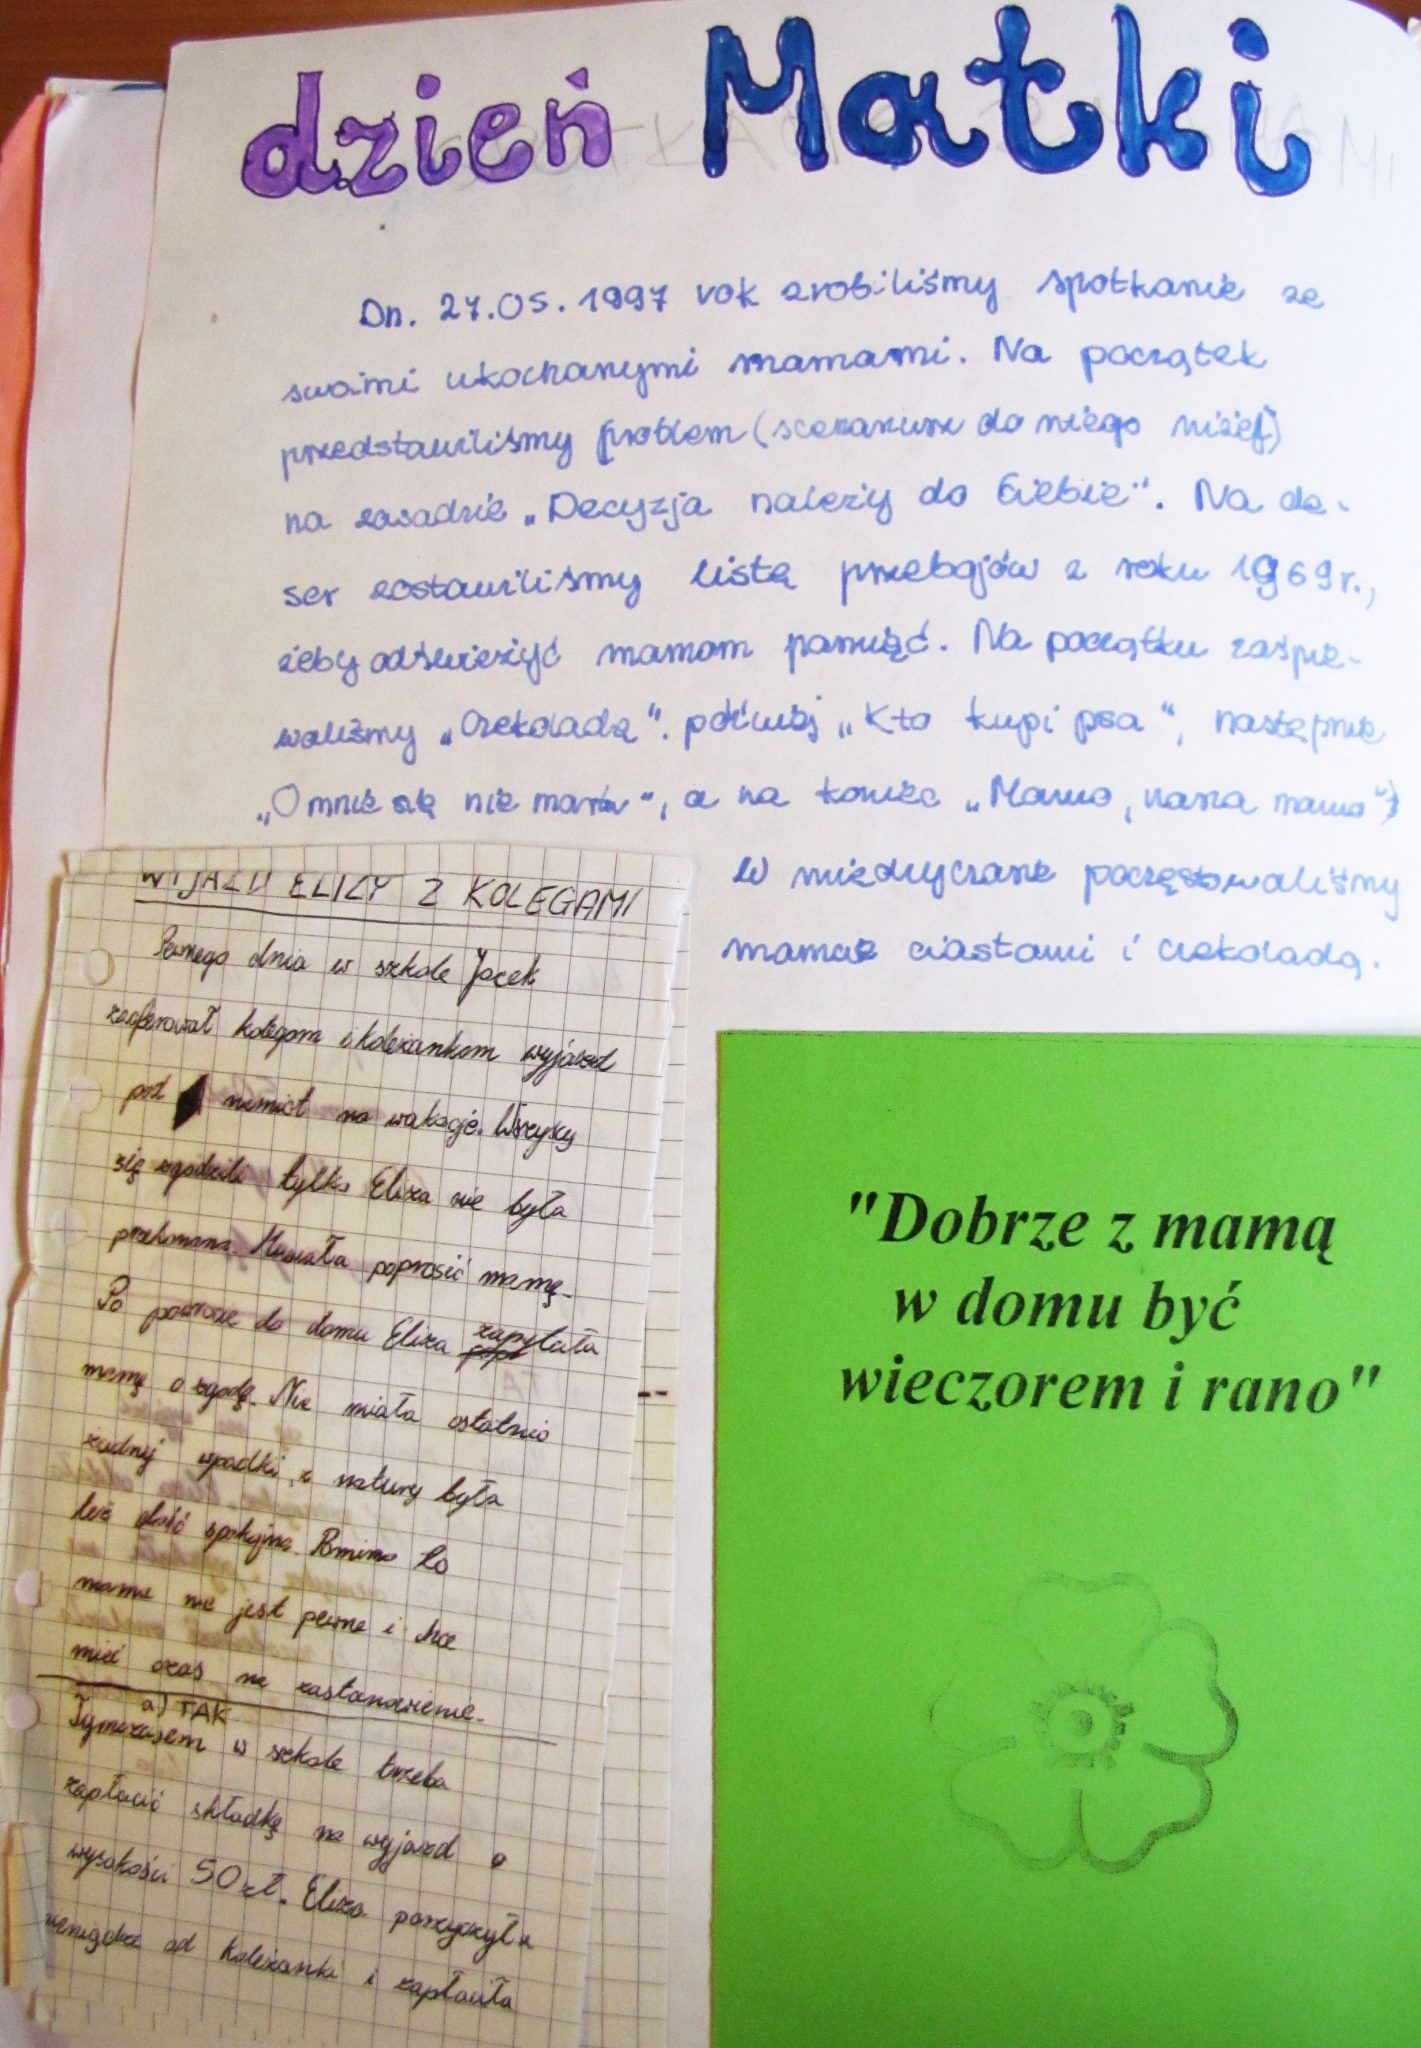 dzień Matki
Dn. 27.05.1997 rok zrobiliśmy spotkanie ze
swoimi ukochanymi mamami. Na początek
przedstawiliśmy problem (scenariusz do niego niżej)
na zasadzie „Decyzja należy do Ciebie". Na de-
ser zostawiliśmy listę przebojów z roku 1969r.,
żeby odświeżyć mamom pamięć. Na początku zaśpie-
waliśmy „Czekoladę". później „Kto kupi psa", następnie
„O mnie się nie martw", a na koniec „Mamo, nasza mamo")
W międzyczasie poczęstowaliśmy
mamae ciastami i czekoladą.
WYJAZD ELIZY Z KOLEGAMI
Pewnego dnia w szkole Jacek
zaoferował kolegom i koleżankom wyjazd
pod namiot na wakacje. Wszyscy
się zgodzili tylko Eliza nie była
przekonana. Musiała poprosić mamę.
Po powrocie do domu Eliza zapytała
mamę o zgodę. Nie miała ostatnio
żadnej wpadki, z natury była
też dość spokojna. Pomimo to
mama nie jest pewna i chce
mieć czas na zastanowienie.
a) TAK
Tymczasem w szkole trzeba
zapłacić składkę na wyjazd o
wysokości 50 zł. Eliza pożyczyła
pieniądze od koleżanki i zapłaciła
"Dobrze z mamą
w domu być
wieczorem i rano"